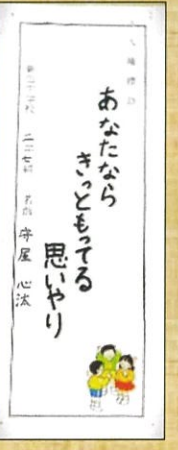 人権標語
あなたなら
きっともってる
思いやり
名前 守屋 心汰